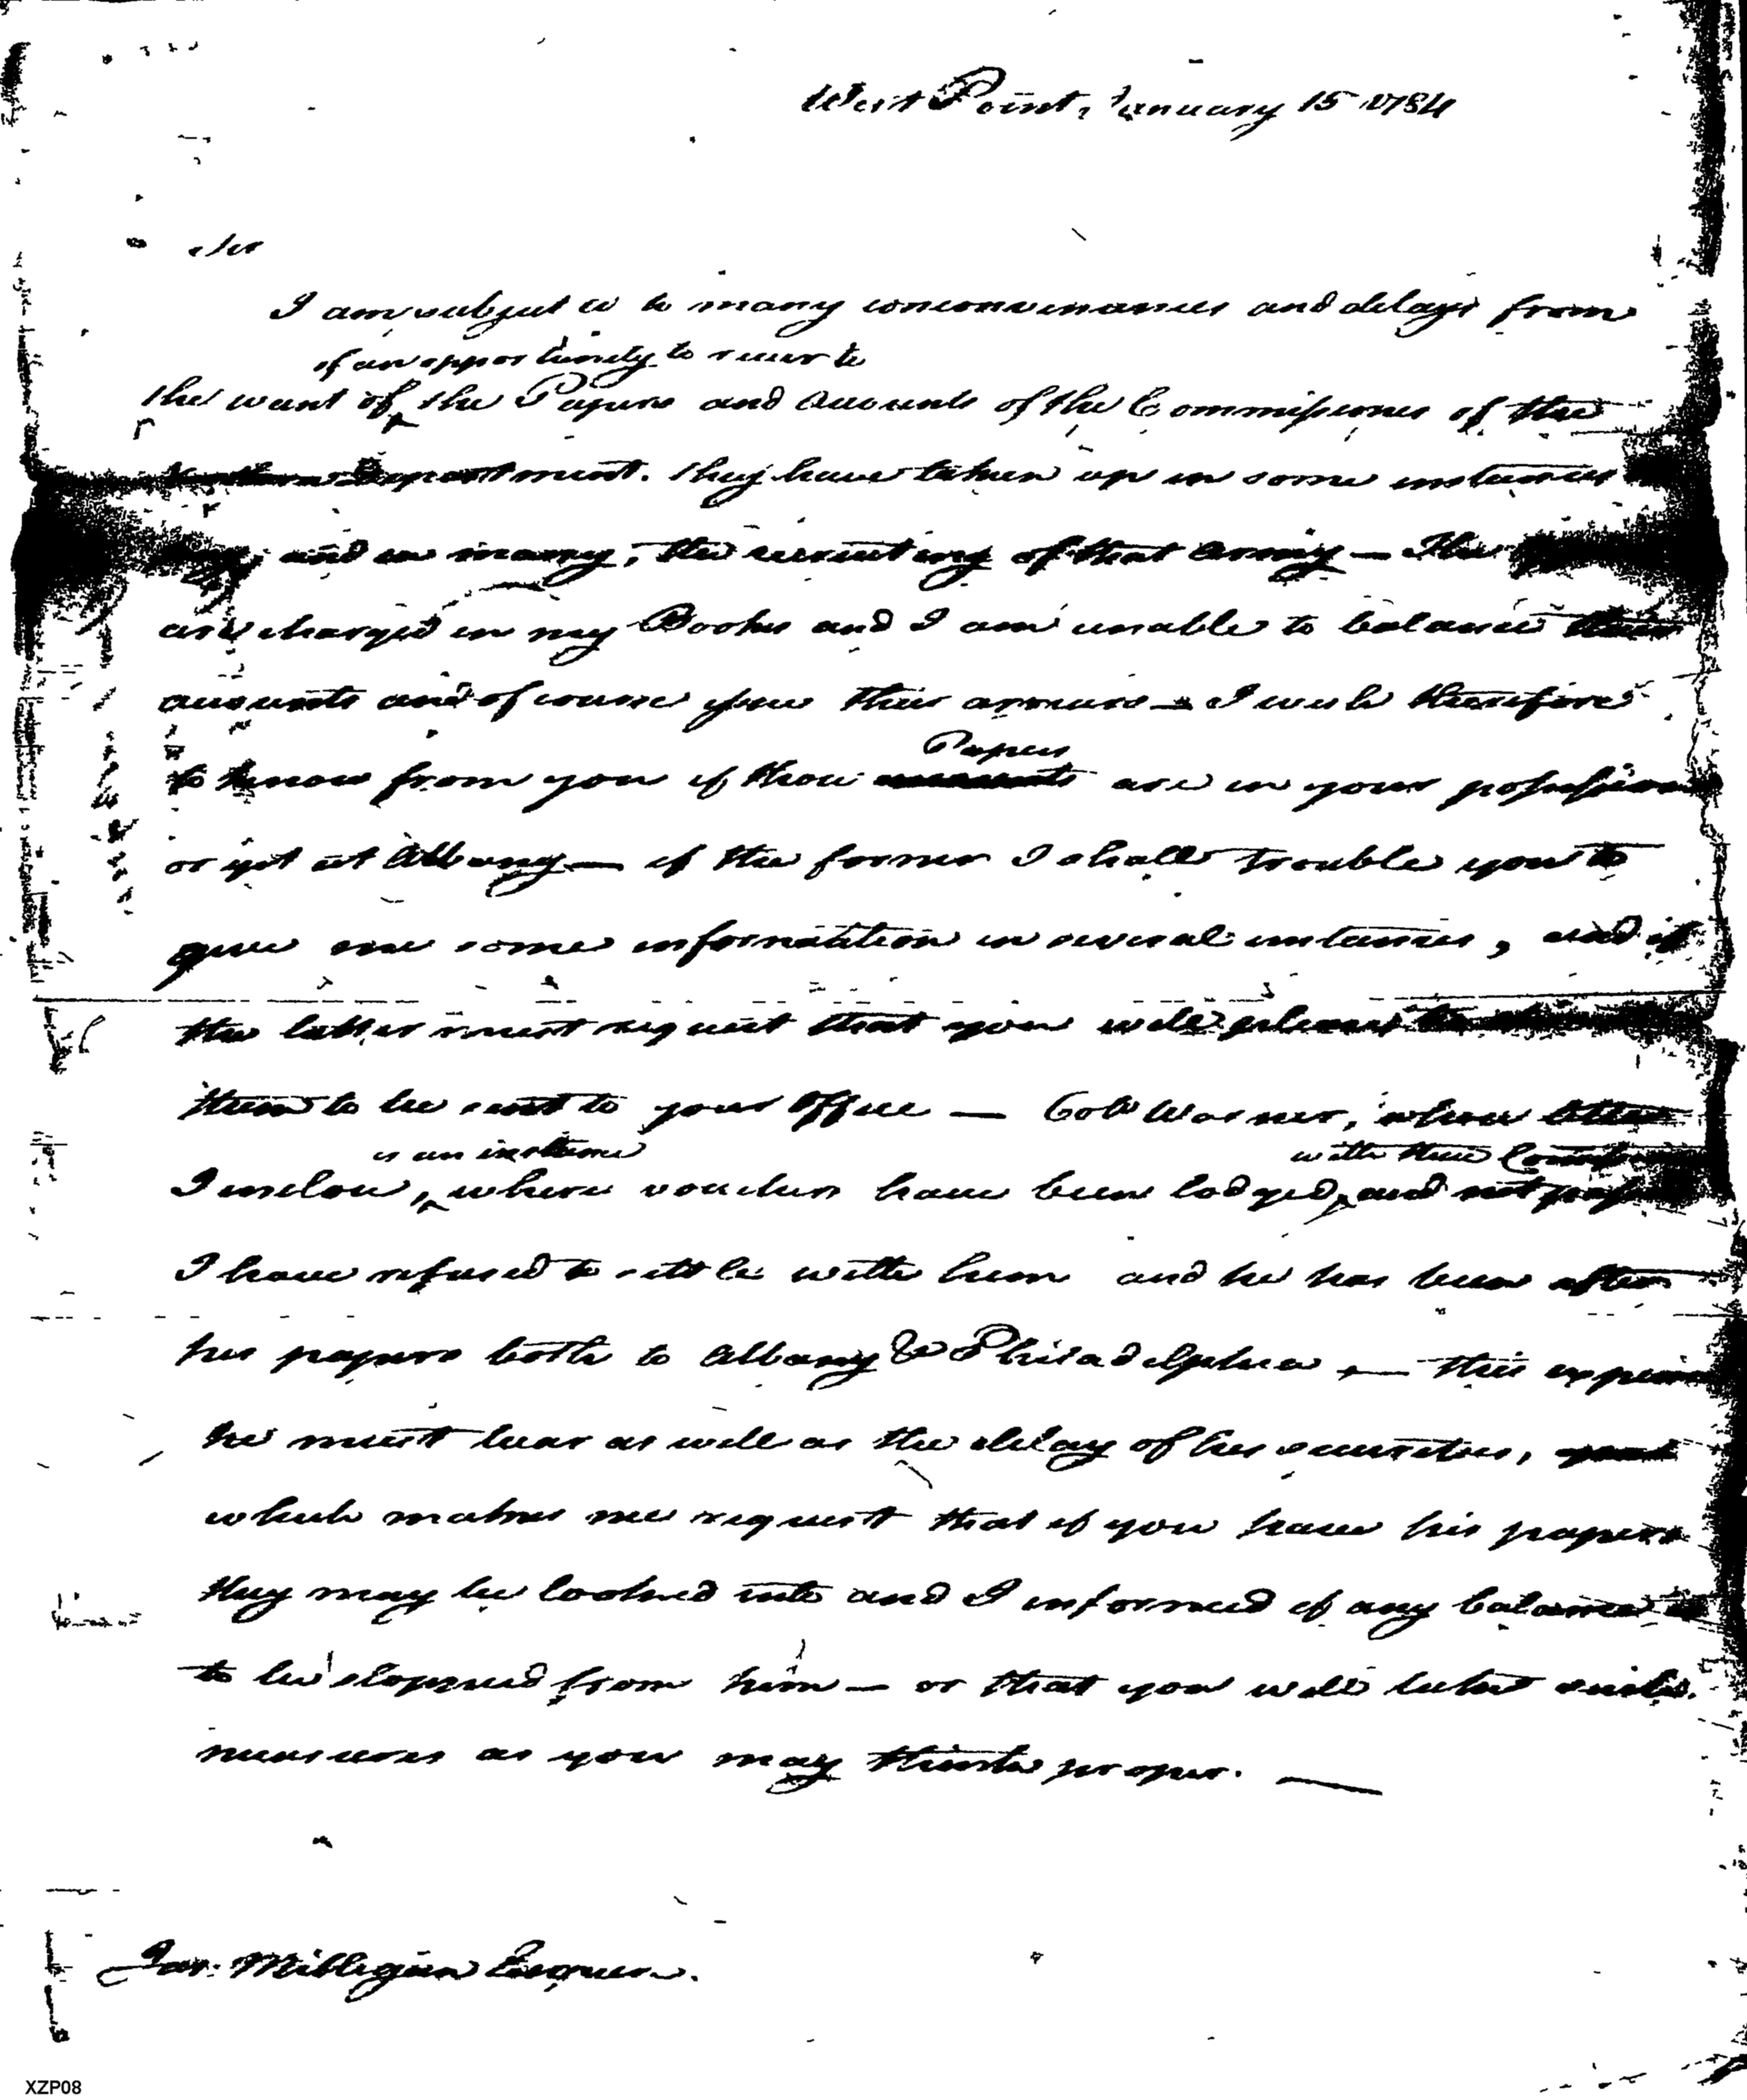 West Point, January 15 1784
Sir
I am subject to many inconveniences and delays from
of an opportunity to recur to
the want of the Papers and Accounts of the Commissioners of the
Northern Department. They have taken up in some instances
and in many, the recruiting of that Army — The
are charged in my Books and I am unable to balance their
accounts and of course your their arrears — I wish therefore
Papers
to know from you if those accounts are in your possession
or yet at Albany — if the former I shall trouble you to
give me some information in several instances, and if
the latter must request that you will please to
them to be sent to your Office — Col Warner, whose letter
is an instance with these
I inclose, where vouchers have been lodged, and not
I have refused to settle with him and he has been after
his papers both to Albany & Philadelphia — this expence
he must bear as well as the delay of his securities,
which makes me request that if you have his papers
they may be looked into and I informed if any balance is
to be stopped from him — or that you will take such
measures as you may think proper. —
Jas. Milligan Esquire.
XZP08